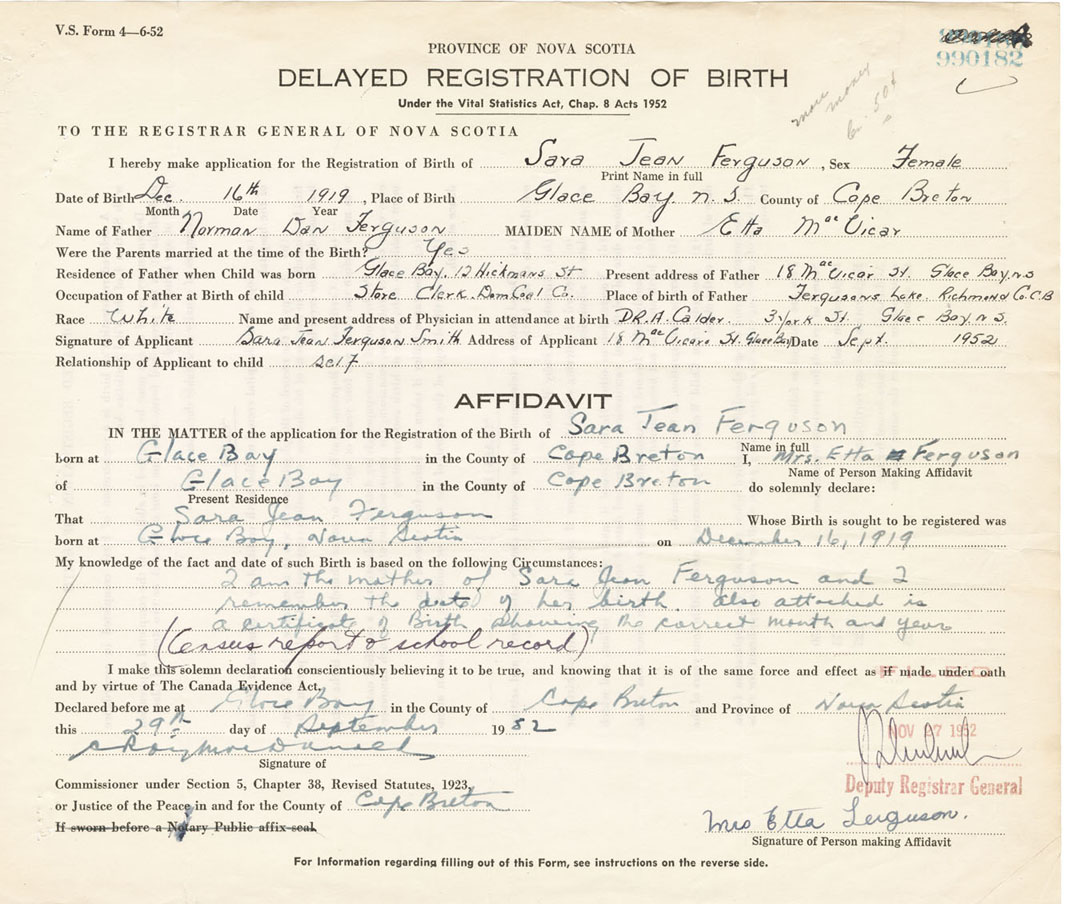 V.S. Form 4—6-52
990182
PROVINCE OF NOVA SCOTIA
DELAYED REGISTRATION OF BIRTH
Under the Vital Statistics Act, Chap. 8 Acts 1952
more money
50¢
TO THE REGISTRAR GENERAL OF NOVA SCOTIA
I hereby make application for the Registration of Birth of Sara Jean Ferguson, Sex Female
Print Name in full
Date of Birth Dec. 16th 1919, Place of Birth Glace Bay. N.S. County of Cape Breton
Month Date Year
Name of Father Norman Dan Ferguson MAIDEN NAME of Mother Etta MacVicar
Were the Parents married at the time of the Birth? Yes
Residence of Father when Child was born Glace Bay. 12 Hickmans St Present address of Father 18 MacVicar St. Glace Bay. N.S
Occupation of Father at Birth of child Store Clerk. Dom Coal Co. Place of birth of Father Fergusons Lake. Richmond Co. C.B
Race White Name and present address of Physician in attendance at birth DR. A. Calder. 3 York St. Glace Bay. N.S.
Signature of Applicant Sara Jean Ferguson Smith Address of Applicant 18 MacVicars St. Glace Bay Date Sept. 1952
Relationship of Applicant to child Self
AFFIDAVIT
IN THE MATTER of the application for the Registration of the Birth of Sara Jean Ferguson
Name in full
born at Glace Bay in the County of Cape Breton I, Mrs. Etta Ferguson
Name of Person Making Affidavit
of Glace Bay in the County of Cape Breton do solemnly declare:
Present Residence
That Sara Jean Ferguson Whose Birth is sought to be registered was
born at Glace Bay, Nova Scotia on December 16, 1919
My knowledge of the fact and date of such Birth is based on the following Circumstances:
I am the mother of Sara Jean Ferguson and I
remember the date of her birth. Also attached is
a certificate of Birth showing the correct month and year
(Census report & school record)
I make this solemn declaration conscientiously believing it to be true, and knowing that it is of the same force and effect as if made under oath
and by virtue of The Canada Evidence Act.
Declared before me at Glace Bay in the County of Cape Breton and Province of Nova Scotia
this 29th day of September 1952
NOV 27 1952
Signature of
Commissioner under Section 5, Chapter 38, Revised Statutes, 1923,
Deputy Registrar General
or Justice of the Peace in and for the County of Cape Breton
If sworn before a Notary Public affix seal
Mrs Etta Ferguson.
Signature of Person making Affidavit
For Information regarding filling out of this Form, see instructions on the reverse side.